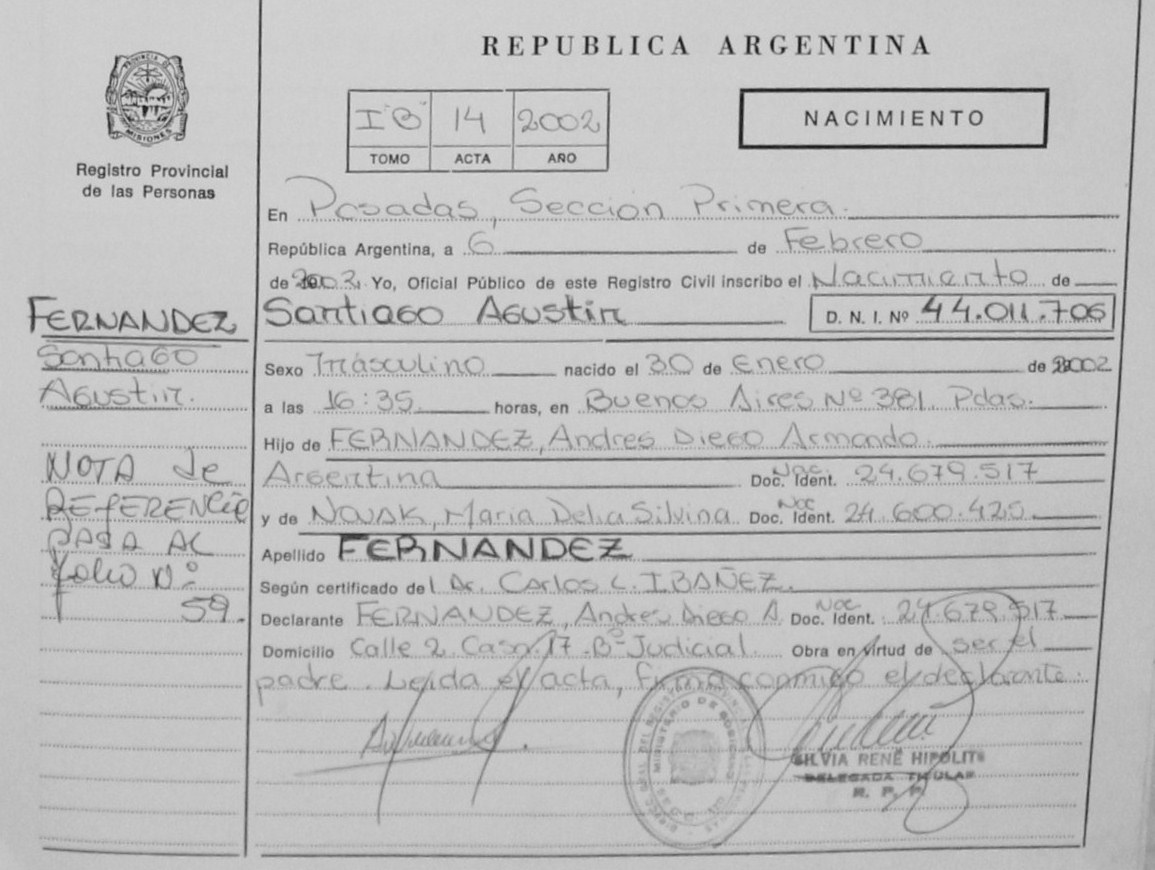 REPUBLICA ARGENTINA
PROVINCIA DE
MISIONES
Registro Provincial
de las Personas
I "B" 14 2002
TOMO ACTA AÑO
NACIMIENTO
En Posadas, Sección Primera.
República Argentina, a 6 de Febrero
de 2002. Yo, Oficial Público de este Registro Civil inscribo el Nacimiento de
Santiago Agustin D. N. I. Nº 44.011.706
Sexo Masculino nacido el 30 de Enero de 2002
a las 16:35 horas, en Buenos Aires Nº 381. Pdas.
Hijo de FERNANDEZ, Andres Diego Armando.
Argentina Nac. Doc. Ident. 24.679.517
y de NOVAK, Maria Delia Silvina Doc. Ident. 24.600.425
Apellido FERNANDEZ
Según certificado del Dr. Carlos L. IBAÑEZ.
Declarante FERNANDEZ, Andres Diego A. Doc. Ident. 24.679.517
Domicilio Calle 2 Casa 17. Bº Judicial. Obra en virtud de ser el
padre. Leida el acta, firma conmigo el declarante.
SILVIA RENÉ HIPOLITO
DELEGADA TITULAR
R. P. P.
FERNANDEZ
Santiago
Agustin.
NOTA de
REFERENCIA
PASA AL
folio Nº
59.